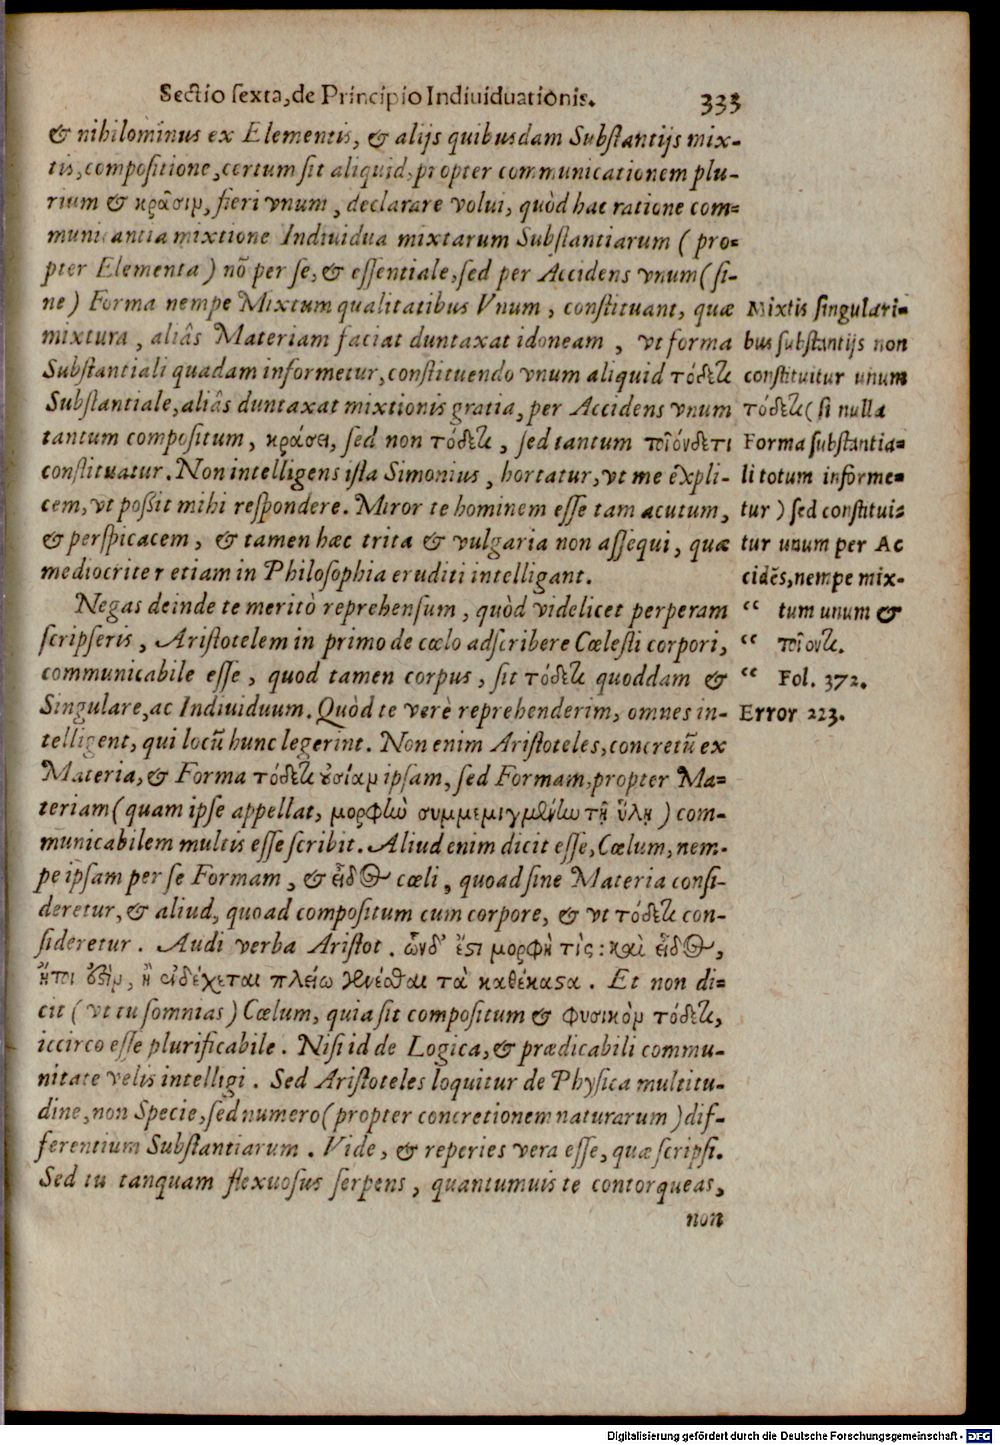 Sectio sexta, de Principio Indiuiduationis. 333
& nihilominus ex Elementis, & alijs quibusdam Substantijs mix-
tis, compositione, certum sit aliquid, propter communicationem plu-
rium & κρᾶσιμ, fieri vnum, declarare volui, quòd hac ratione com-
municantia mixtione Indiuidua mixtarum Substantiarum (pro-
pter Elementa) nõ per se, & essentiale, sed per Accidens vnum (si-
ne) Forma nempe Mixtum qualitatibus Vnum, constituant, quæ
mixtura, aliâs Materiam faciat duntaxat idoneam, vt forma
Substantiali quadam informetur, constituendo vnum aliquid τόδετι
Substantiale, aliâs duntaxat mixtionis gratia, per Accidens vnum
tantum compositum, κράσει, sed non τόδετι, sed tantum ποιόνδετι
constituatur. Non intelligens ista Simonius, hortatur, vt me expli-
cem, vt possit mihi respondere. Miror te hominem esse tam acutum,
& perspicacem, & tamen hæc trita & vulgaria non assequi, quæ
mediocriter etiam in Philosophia eruditi intelligant.
Negas deinde te meritò reprehensum, quòd videlicet perperam
scripseris, Aristotelem in primo de cœlo adscribere Cœlesti corpori,
communicabile esse, quod tamen corpus, sit τόδετι quoddam &
Singulare, ac Indiuiduum. Quòd te verè reprehenderim, omnes in-
telligent, qui locũ hunc legerint. Non enim Aristoteles, concretũ ex
Materia, & Forma τόδετι οὐσίαμ ipsam, sed Formam, propter Ma-
teriam (quam ipse appellat, μορφὴν συμμεμιγμένην τῇ ὕλῃ) com-
municabilem multis esse scribit. Aliud enim dicit esse, Cœlum, nem-
pe ipsam per se Formam, & εἶδος cœli, quoad sine Materia consi-
deretur, & aliud, quoad compositum cum corpore, & vt τόδετι con-
sideretur. Audi verba Aristot. ὧνδ' ἔστι μορφή τις: καὶ εἶδος,
ἤτοι ἔστιμ, ἢ ἐνδέχεται πλείω γενέσθαι τὰ καθέκαστα. Et non di-
cit (vt tu somnias) Cœlum, quia sit compositum & φυσικὸμ τόδετι,
iccirco esse plurificabile. Nisi id de Logica, & prædicabili commu-
nitate velis intelligi. Sed Aristoteles loquitur de Physica multitu-
dine, non Specie, sed numero (propter concretionem naturarum) dif-
ferentium Substantiarum. Vide, & reperies vera esse, quæ scripsi.
Sed tu tanquam flexuosus serpens, quantumuis te contorqueas,
non
Mixtis singulari-
bus substantijs non
constituitur unum
τόδετι (si nulla
Forma substantia-
li totum informe-
tur) sed constitui-
tur unum per Ac
cidẽs, nempe mix-
“ tum unum &
“ ποιόντι.
“ Fol. 372.
Error 223.
Digitalisierung gefördert durch die Deutsche Forschungsgemeinschaft - DFG